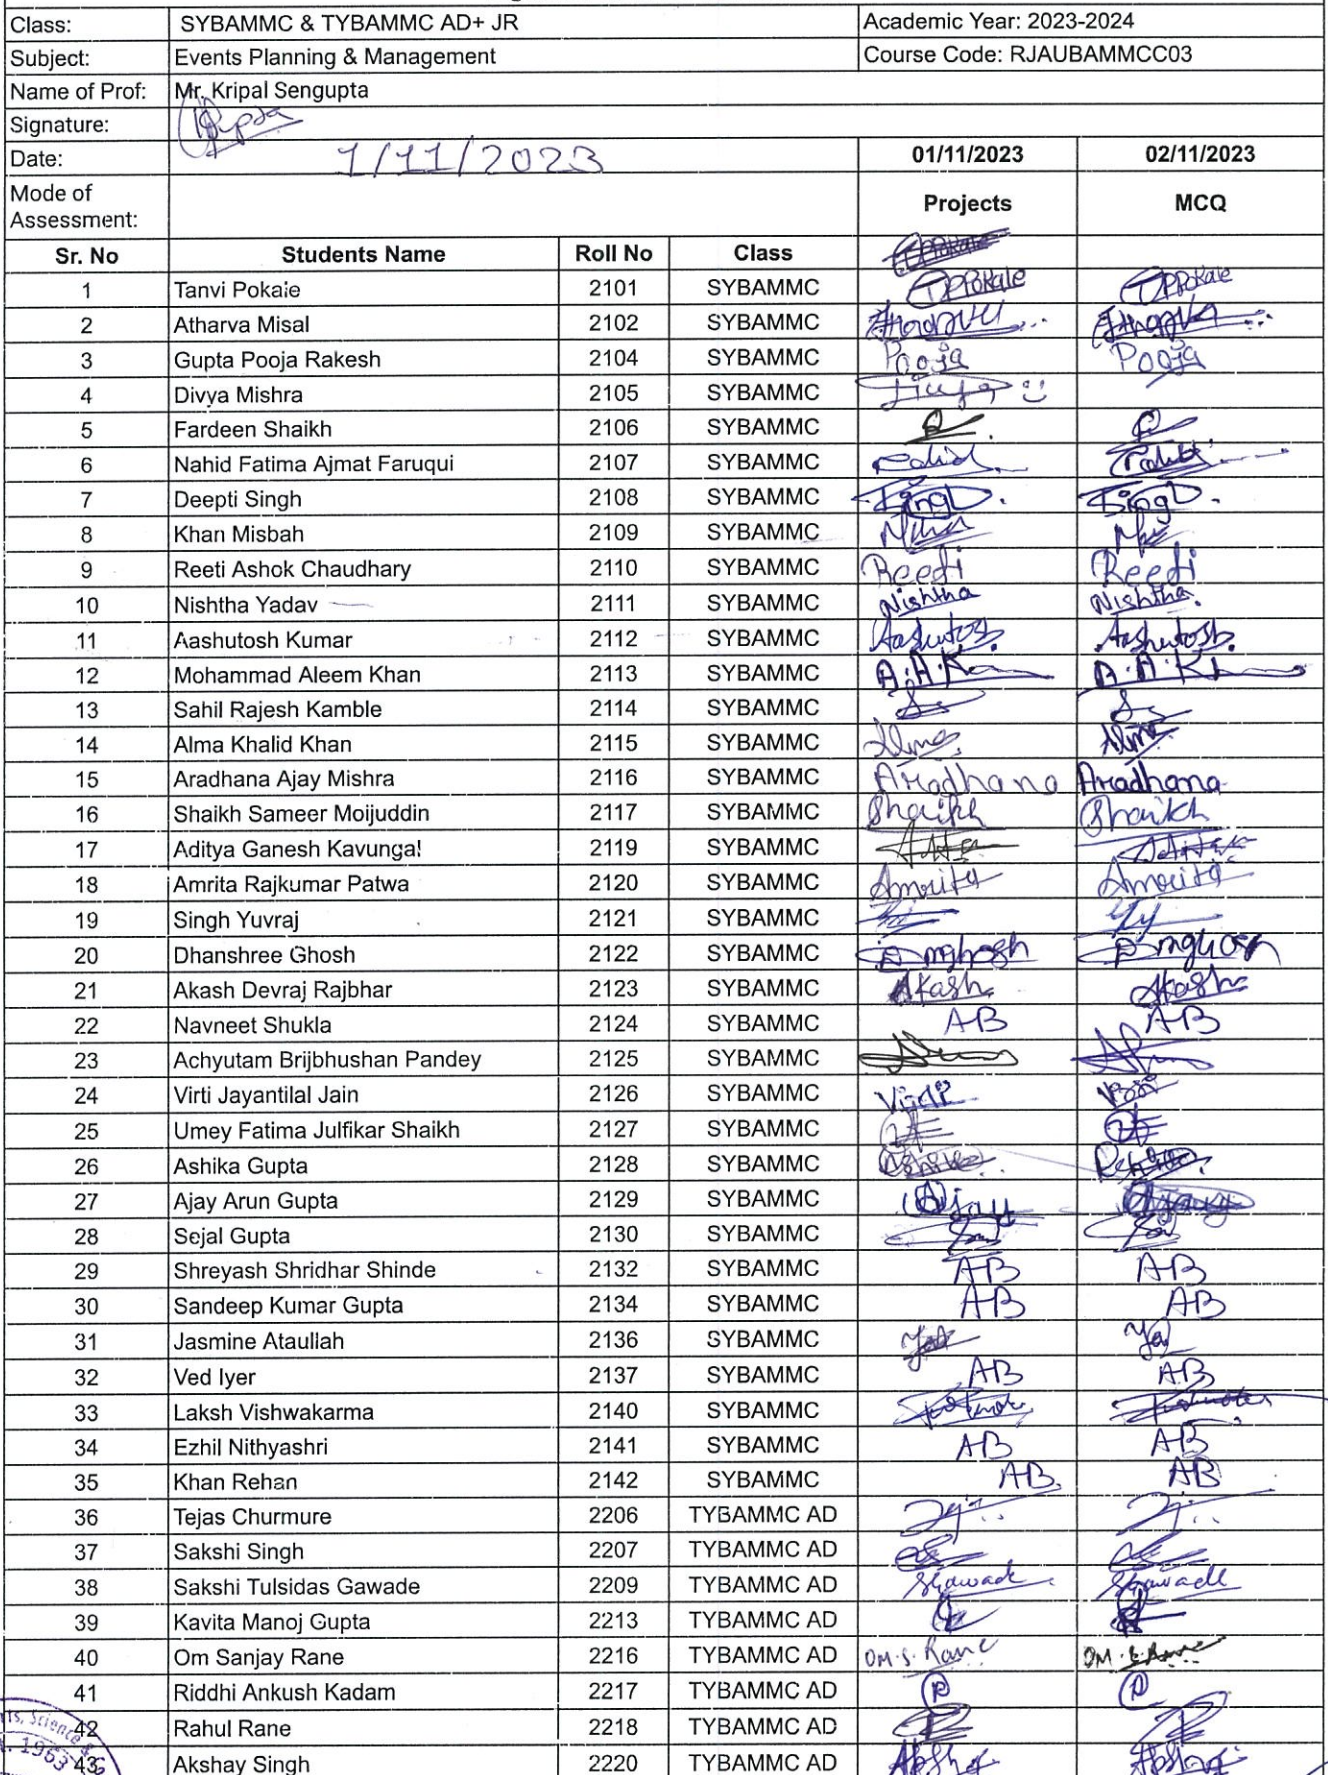 Class: SYBAMMC & TYBAMMC AD+ JR Academic Year: 2023-2024
Subject: Events Planning & Management Course Code: RJAUBAMMCC03
Name of Prof: Mr. Kripal Sengupta
Signature:
Date: 1/11/2023 01/11/2023 02/11/2023
Mode of Assessment: Projects MCQ
Sr. No Students Name Roll No Class
1 Tanvi Pokale 2101 SYBAMMC TPPokale TPPokale
2 Atharva Misal 2102 SYBAMMC
3 Gupta Pooja Rakesh 2104 SYBAMMC Pooja Pooja
4 Divya Mishra 2105 SYBAMMC
5 Fardeen Shaikh 2106 SYBAMMC
6 Nahid Fatima Ajmat Faruqui 2107 SYBAMMC
7 Deepti Singh 2108 SYBAMMC
8 Khan Misbah 2109 SYBAMMC
9 Reeti Ashok Chaudhary 2110 SYBAMMC Reeti Reeti
10 Nishtha Yadav 2111 SYBAMMC Nishtha Nishtha.
11 Aashutosh Kumar 2112 SYBAMMC Aashutosh Aashutosh
12 Mohammad Aleem Khan 2113 SYBAMMC
13 Sahil Rajesh Kamble 2114 SYBAMMC
14 Alma Khalid Khan 2115 SYBAMMC Alma Alma
15 Aradhana Ajay Mishra 2116 SYBAMMC Aradhana Aradhana
16 Shaikh Sameer Moijuddin 2117 SYBAMMC Shaikh Shaikh
17 Aditya Ganesh Kavungal 2119 SYBAMMC
18 Amrita Rajkumar Patwa 2120 SYBAMMC Amrita Amrita
19 Singh Yuvraj 2121 SYBAMMC
20 Dhanshree Ghosh 2122 SYBAMMC Dmghosh Dmghosh
21 Akash Devraj Rajbhar 2123 SYBAMMC Akash Akash
22 Navneet Shukla 2124 SYBAMMC AB AB
23 Achyutam Brijbhushan Pandey 2125 SYBAMMC
24 Virti Jayantilal Jain 2126 SYBAMMC
25 Umey Fatima Julfikar Shaikh 2127 SYBAMMC
26 Ashika Gupta 2128 SYBAMMC
27 Ajay Arun Gupta 2129 SYBAMMC Ajay Ajay
28 Sejal Gupta 2130 SYBAMMC
29 Shreyash Shridhar Shinde 2132 SYBAMMC AB AB
30 Sandeep Kumar Gupta 2134 SYBAMMC AB AB
31 Jasmine Ataullah 2136 SYBAMMC
32 Ved Iyer 2137 SYBAMMC AB AB
33 Laksh Vishwakarma 2140 SYBAMMC
34 Ezhil Nithyashri 2141 SYBAMMC AB AB
35 Khan Rehan 2142 SYBAMMC AB. AB
36 Tejas Churmure 2206 TYBAMMC AD
37 Sakshi Singh 2207 TYBAMMC AD
38 Sakshi Tulsidas Gawade 2209 TYBAMMC AD SGawade SGawade
39 Kavita Manoj Gupta 2213 TYBAMMC AD
40 Om Sanjay Rane 2216 TYBAMMC AD OM.S.Rane OM.S.Rane
41 Riddhi Ankush Kadam 2217 TYBAMMC AD
42 Rahul Rane 2218 TYBAMMC AD
43 Akshay Singh 2220 TYBAMMC AD
Science &
1963